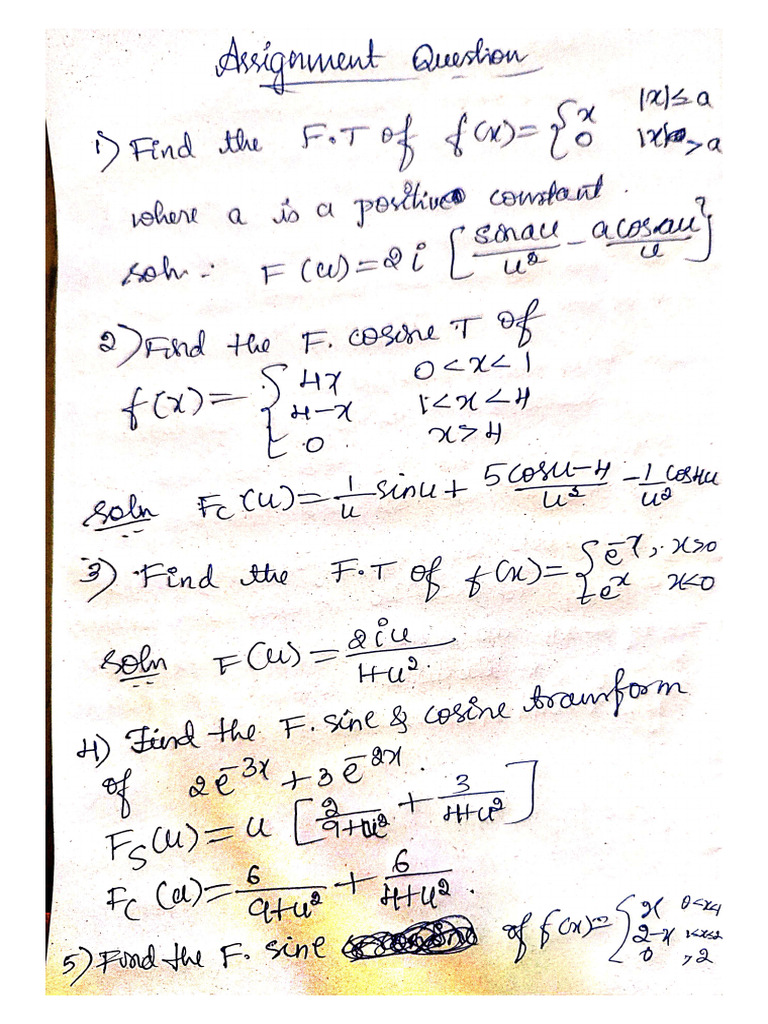 Assignment Question
1) Find the F.T of f(x) = { x |x| ≤ a
0 |x| > a
where a is a positive constant.
soln :- F(u) = 2i [ sinau/u² - acosau/u ]
2) Find the F. cosine T of
f(x) = { 4x 0<x<1
4-x 1<x<4
0 x>4
soln Fc(u) = 1/u sinu + 5cosu-4/u² - 1/u² cos4u
3) Find the F.T of f(x) = { e^-x, x>0
e^x x<0
soln F(u) = 2iu/1+u².
4) Find the F. sine & cosine transform
of 2e^-3x + 3e^-2x.
Fs(u) = u [ 2/9+u² + 3/4+u² ]
Fc(u) = 6/9+u² + 6/4+u².
5) Find the F. sine of f(x) = { x 0<x<1
2-x 1<x<2
0 >2